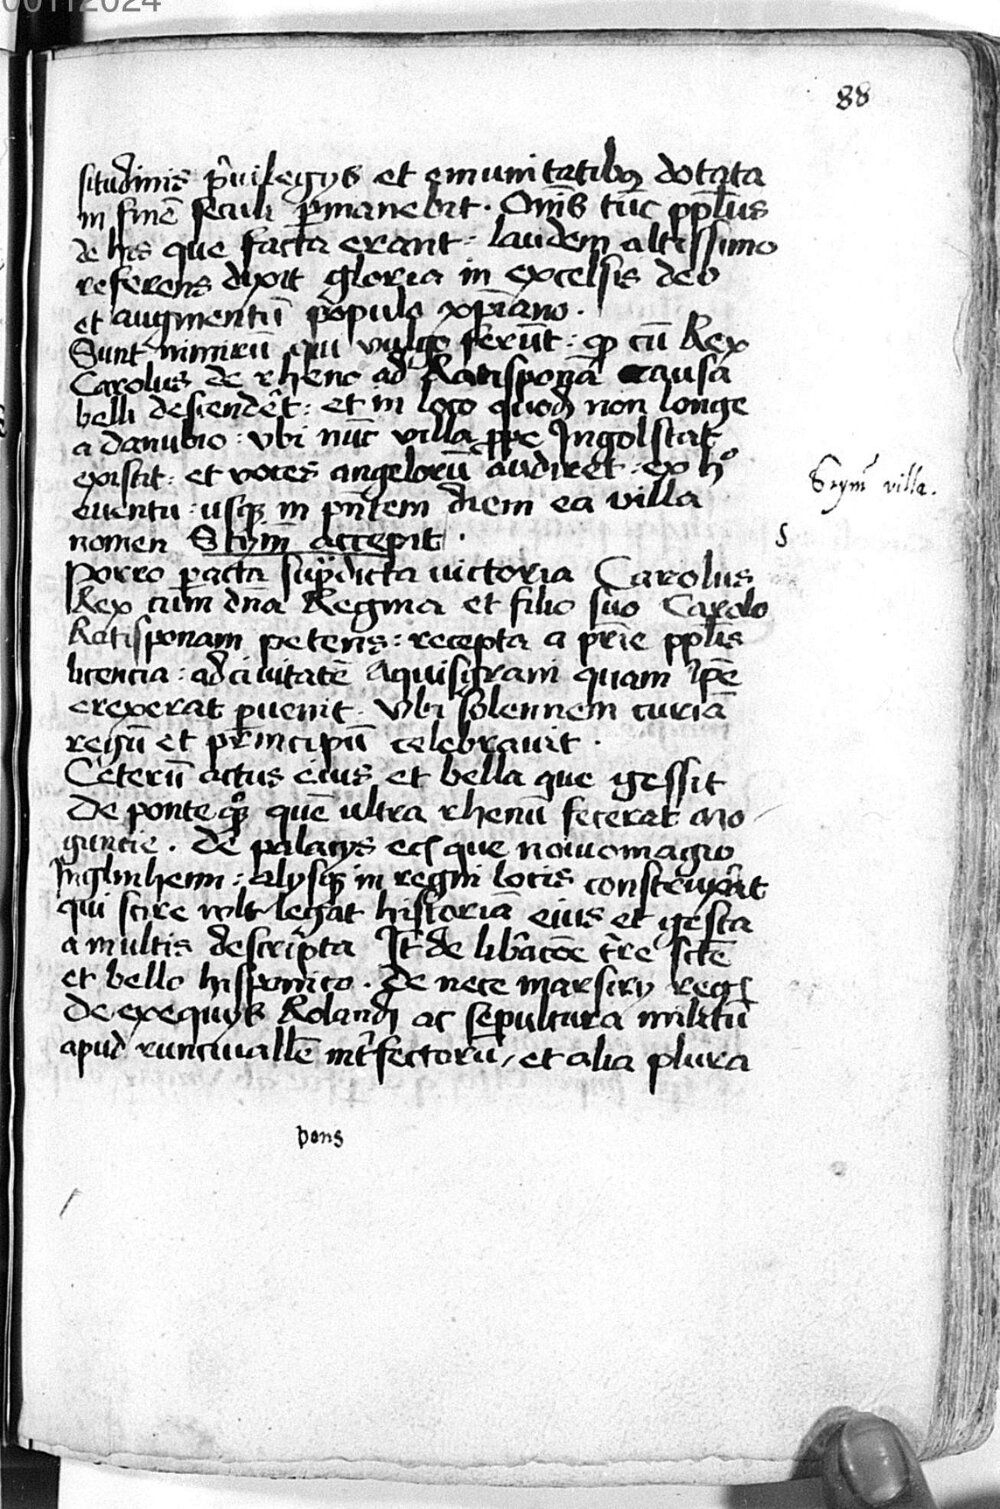 00112024
88
situdinis p̃uilegiys et emunitatibꝫ dotata
in finē seculi ꝑmanebit. Om̃s tũc ppl̃us
de his que facta erant: laudem altissimo
referens dixit gloria in excelsis deo
et augmentũ populo xp̃iano.
Sunt nimirũ qui vulgo ferũt: ꝙ cũ Rex
Carolus de rheno ad Ratisponã causa
belli descendẽt: et in loco quodã non longe
a danubio: vbi nũc villa ꝓpe Ingolstat
existit: et voces angelorũ audiret: ex hº
euentu: usqꝫ in pñtem diem ea villa
nomen Stym̃ accepit.
Stym̃ villa.
Porro ꝑacta sup̃dicta uictoria Carolus
Rex cum dñã Regina et filio suo Carolo
Ratisponam petens: recepta a pr̃ie ppl̃is
licencia: ad ciuitatẽ Aquisgrani quam ip̃e
erexerat ꝑuenit. Vbi solennem curiã
regũ et principũ celebrauit.
Ceterũ actus eius et bella que gessit
De ponte qꝫ quẽ ultra rhenũ fecerat mo
guncie. De palacys ec̃ que nouiomagio
Inglnheim: alysqꝫ in regni locis construxĩt
qui scire vult legat historiã eius et gesta
a multis descripta It̃ de lib̃acõe tr̃e sct̃e
et bello hisponico. De nece marsiry reg̃
De exequiys Rolandi ac sepultura militũ
apud runciuallẽ int̃fectorũ, et alia plura
pons